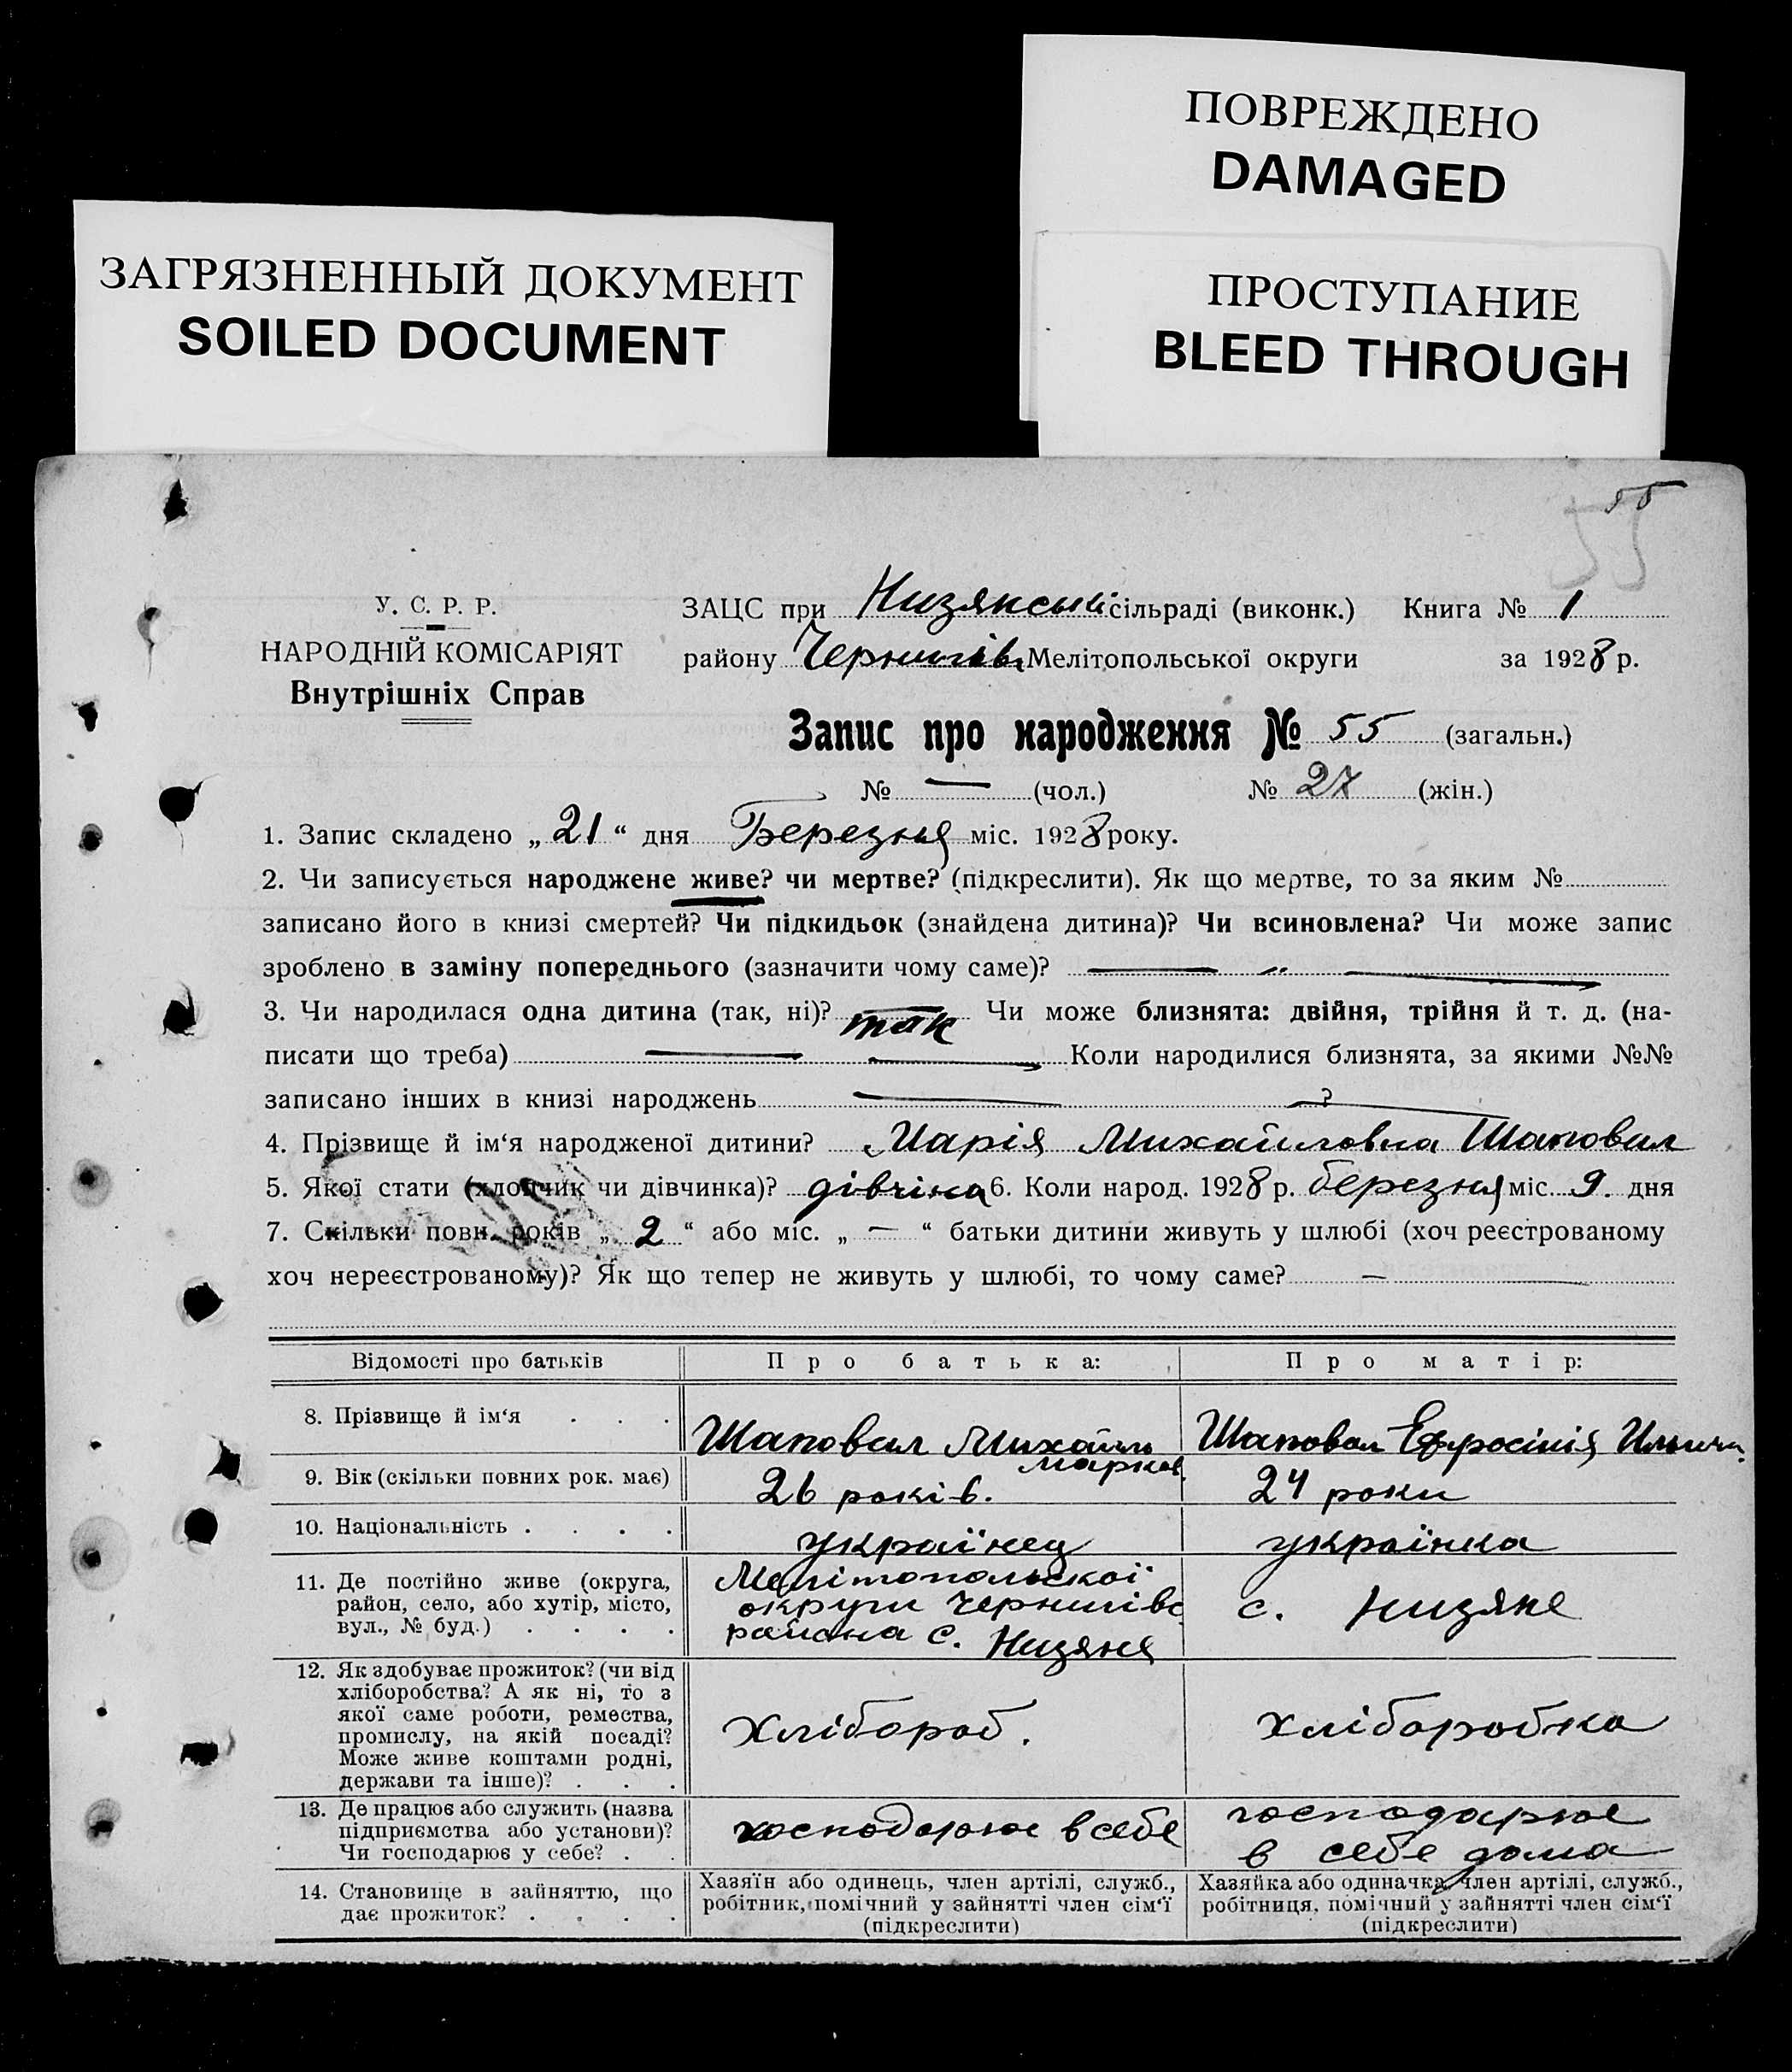 ПОВРЕЖДЕНО
DAMAGED
ЗАГРЯЗНЕННЫЙ ДОКУМЕНТ
SOILED DOCUMENT
ПРОСТУПАНИЕ
BLEED THROUGH
55
55
У. С. Р. Р.
НАРОДНІЙ КОМІСАРІЯТ
Внутрішніх Справ
ЗАЦС при Низянській сільраді (виконк.) Книга № 1
району Чернигівс Мелітопольської округи за 1928 р.
Запис про народження № 55 (загальн.)
№ — (чол.) № 27 (жін.)
1. Запис складено „ 21 “ дня Березня міс. 1928 року.
2. Чи записується народжене живе? чи мертве? (підкреслити). Як що мертве, то за яким №
записано його в книзі смертей? Чи підкидьок (знайдена дитина)? Чи всиновлена? Чи може запис
зроблено в заміну попереднього (зазначити чому саме)? — „ —
3. Чи народилася одна дитина (так, ні)? так Чи може близнята: двійня, трійня й т. д. (на-
писати що треба) — — Коли народилися близнята, за якими №№
записано інших в книзі народжень — ?
4. Прізвище й ім‘я народженої дитини? Марія Михайловна Шаповал
5. Якої стати (хлопчик чи дівчинка)? дівчіна 6. Коли народ. 1928 р. березня міс. 9. дня
7. Скільки повн. років „ 2 “ або міс. „ — “ батьки дитини живуть у шлюбі (хоч реєстрованому
хоч нереєстрованому)? Як що тепер не живуть у шлюбі, то чому саме? —
Відомості про батьків Про батька: Про матір:
8. Прізвище й ім‘я . . . Шаповал Михайль Марков. Шаповал Ефросінія Ильична
9. Вік (скільки повних рок. має) 26 років. 24 роки
10. Національність . . . . українец українка
11. Де постійно живе (округа,
район, село, або хутір, місто,
вул., № буд.) . . . .
Мелітопольскої
округи Чернигівс
района с. Низяня
с. Низяне
12. Як здобуває прожиток? (чи від
хліборобства? А як ні, то з
якої саме роботи, ремества,
промислу, на якій посаді?
Може живе коштами родні,
держави та інше)? . . .
Хлібороб.
хліборобка
13. Де працює або служить (назва
підприємства або установи)?
Чи господарює у себе? . .
господорює в себе
господарює
в себе дома
14. Становище в зайняттю, що
дає прожиток? . . . .
Хазяїн або одинець, член артілі, служб.,
робітник, помічний у зайнятті член сім‘ї
(підкреслити)
Хазяйка або одиначка, член артілі, служб.,
робітниця, помічний у зайнятті член сім‘ї
(підкреслити)